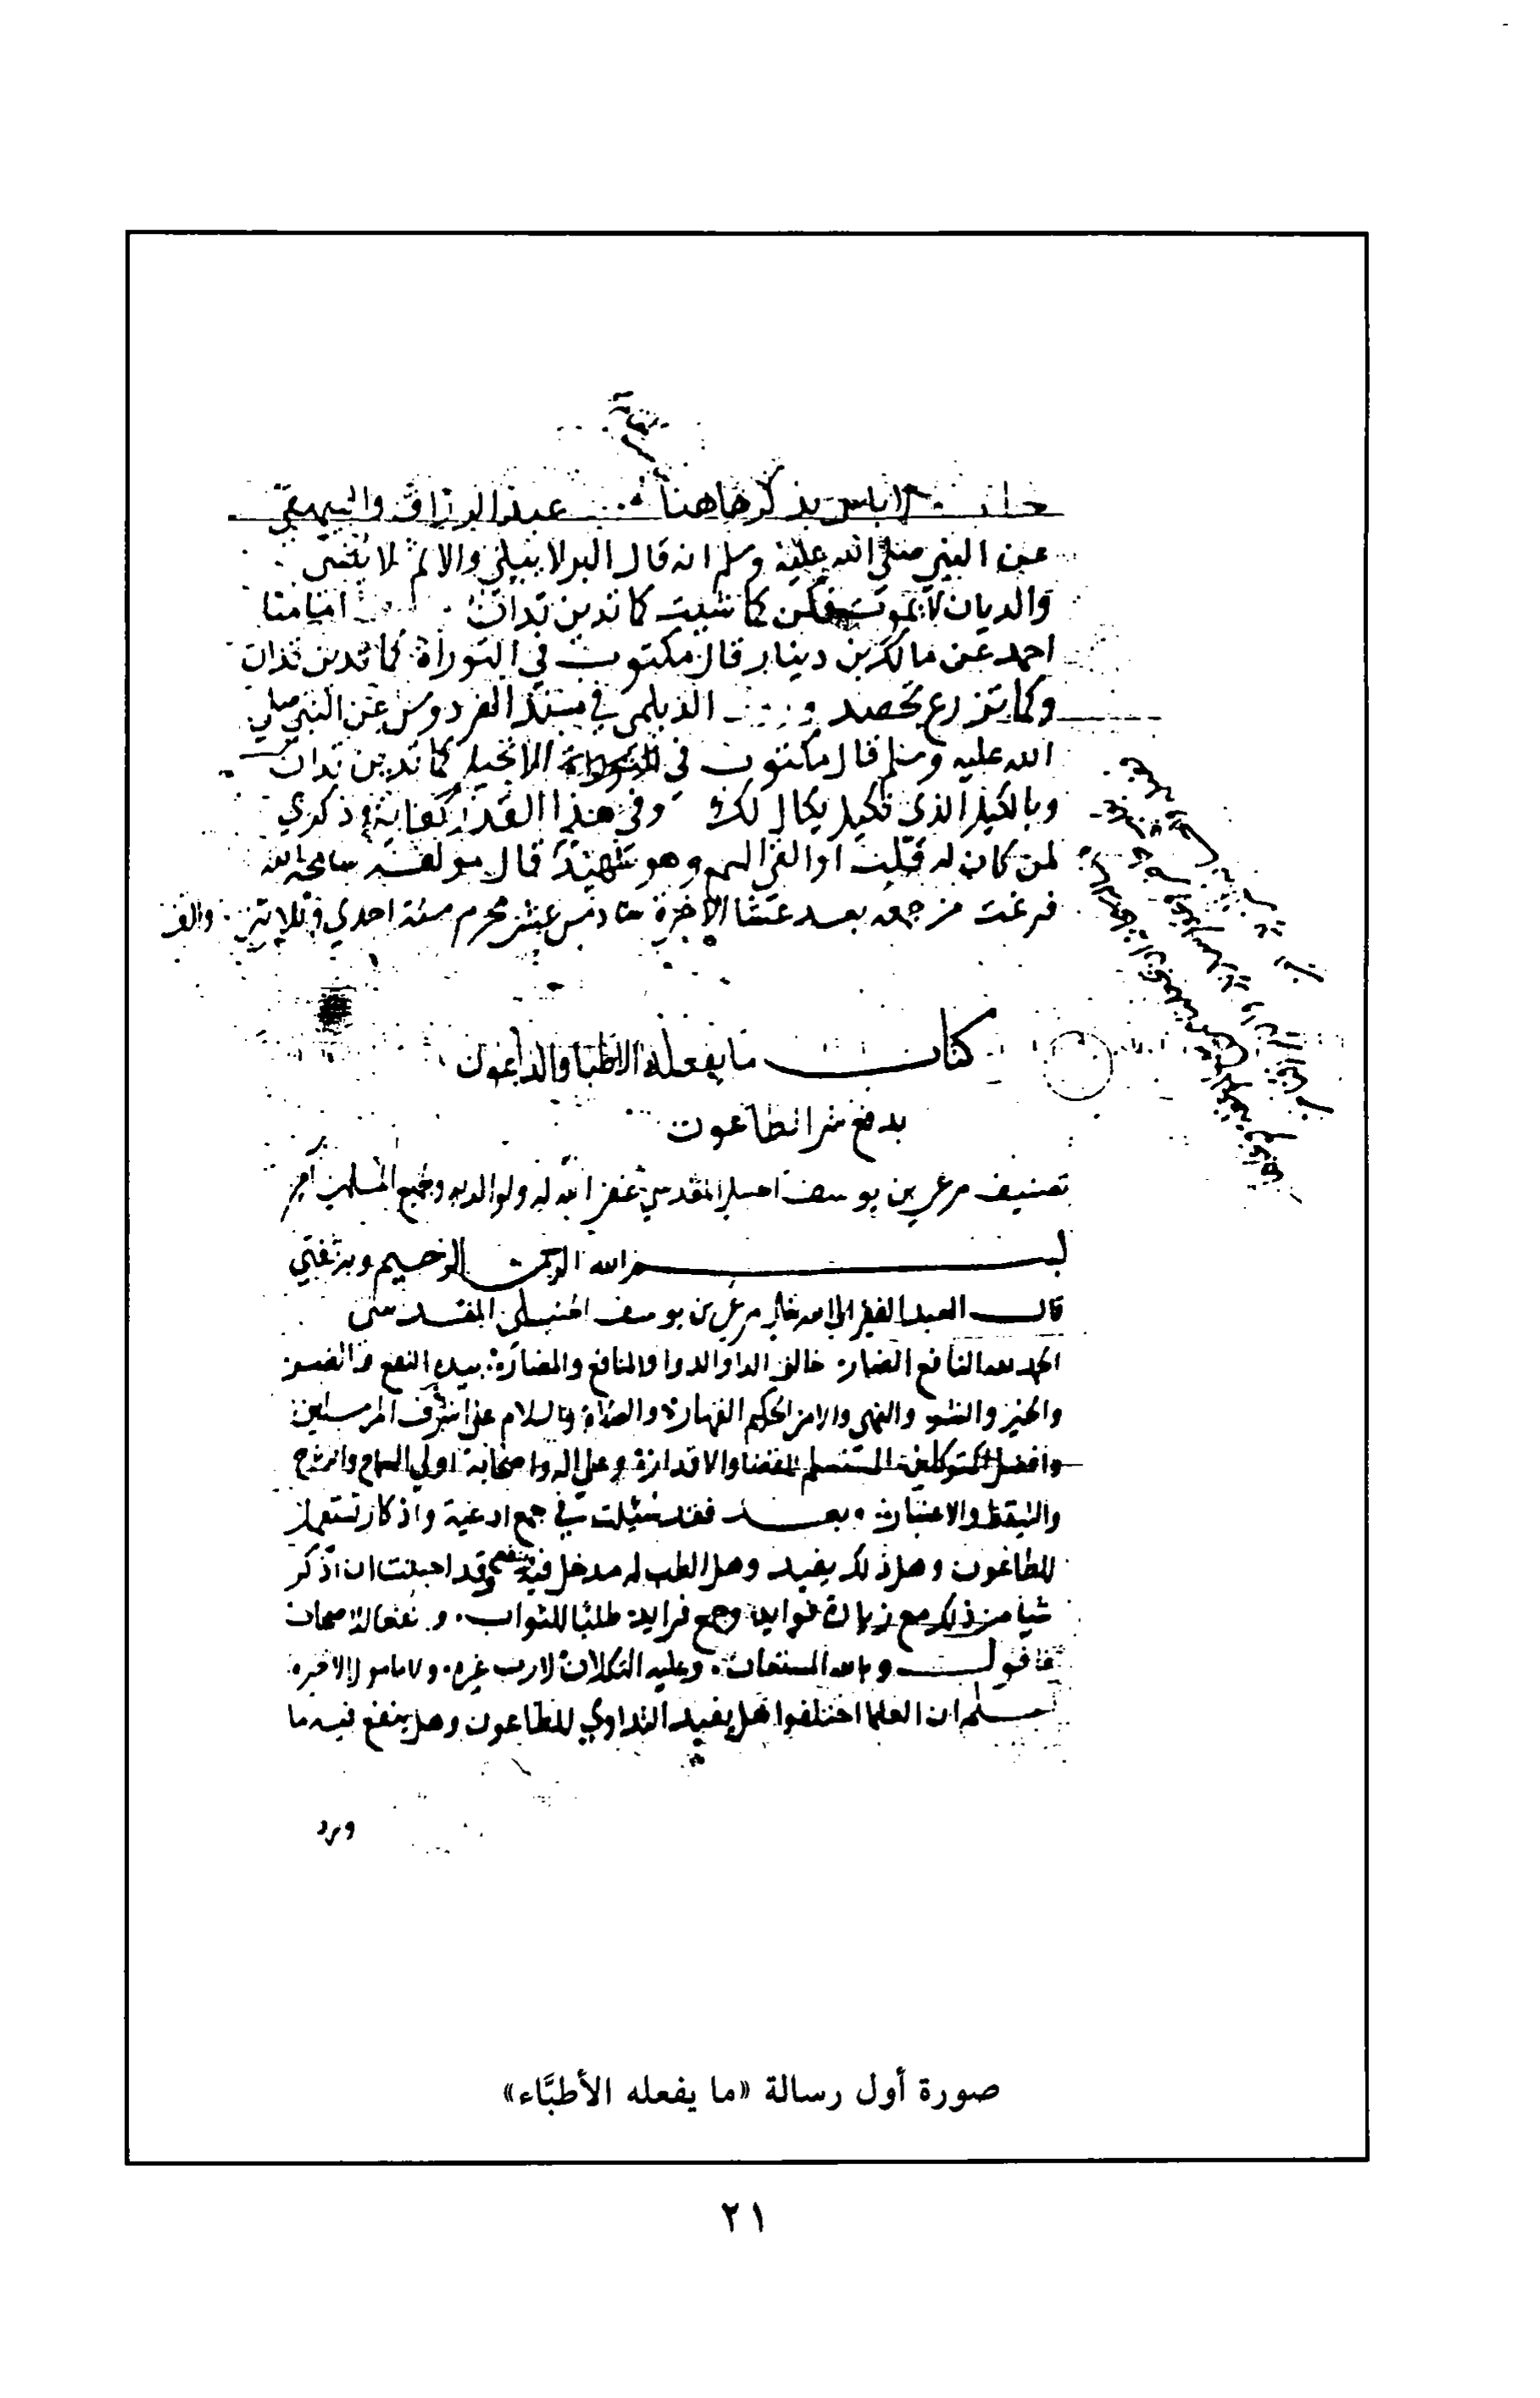 لاباس بذكرها هنا عبد الرزاق والبيهقي
عن النبي صلى الله عليه وسلم انه قال البر لا يبلى والاثم لا ينسى
والديان لا يموت فكن كما شيت كما تدين تدان
احمد عن مالك بن دينار قال مكتوب في التوراة كما تدين تدان
وكما تزرع تحصد الديلمي في مسند الفردوس عن النبي صلى
الله عليه وسلم قال مكتوب في الانجيل كما تدين تدان
وبالكيل الذي تكيل يكال لك وفي هذا القدر كفاية وذكري
لمن كان له قلب او القى السمع وهو شهيد قال مولفه سامحه الله
فرغت من جمعه بعد عشا الاخرة سادس عشر محرم سنة احدي وثلاثين والف
كتاب ما يفعله الاطبا والداعون
بدفع شر الطاعون
تصنيف مرعي بن يوسف الحنبلي المقدسي غفر الله له ولوالديه ولجميع المسلمين
بسم الله الرحمن الرحيم وبه ثقتي
قال العبد الفقير الي الله تعالى مرعي بن يوسف الحنبلي المقدسي
الحمد لله النافع الضار خالق الدا والدوا والمنافع والمضار بيده النفع والضر
والخير والشر والنهى والامر الحكيم القهار والصلاة والسلام على اشرف المرسلين
وافضل المتوكلين المستسلم للقضا والاقدار وعلى اله واصحابه اولي
والتيقظ والاعتبار وبعد فقد سئلت في جمع ادعية واذكار تستعمل
للطاعون وهل ذلك يفيد وهل الطب له مدخل فيه وقد احببت ان اذكر
شيا من ذلك مع زيادة فوايد وجمع فرايد طلبا للثواب ونفعا للاصحاب
فاقول وبالله المستعان وعليه التكلان لا رب غيره ولا مامول الا خيره
اعلم ان العلما اختلفوا هل يفيد التداوي للطاعون وهل ينفع فيه ما
ورد
صورة أول رسالة «ما يفعله الأطبَّاء»
٢١